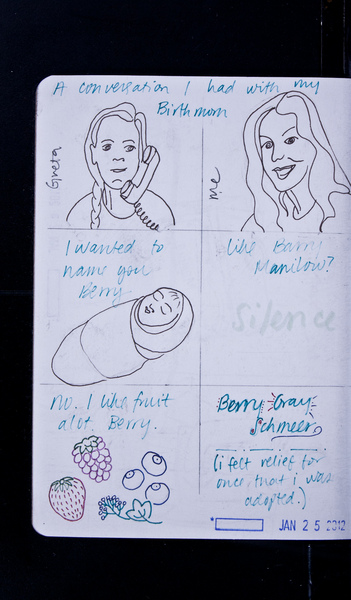 A conversation I had with my
Birthmom
Greta
me
I wanted to
name you
Berry
like Barry
Manilow?
Silence
no. I like fruit
alot. Berry.
Berry Gray
Schmeer
(i felt relief for
once that i was
adopted.)
* JAN 25 2012